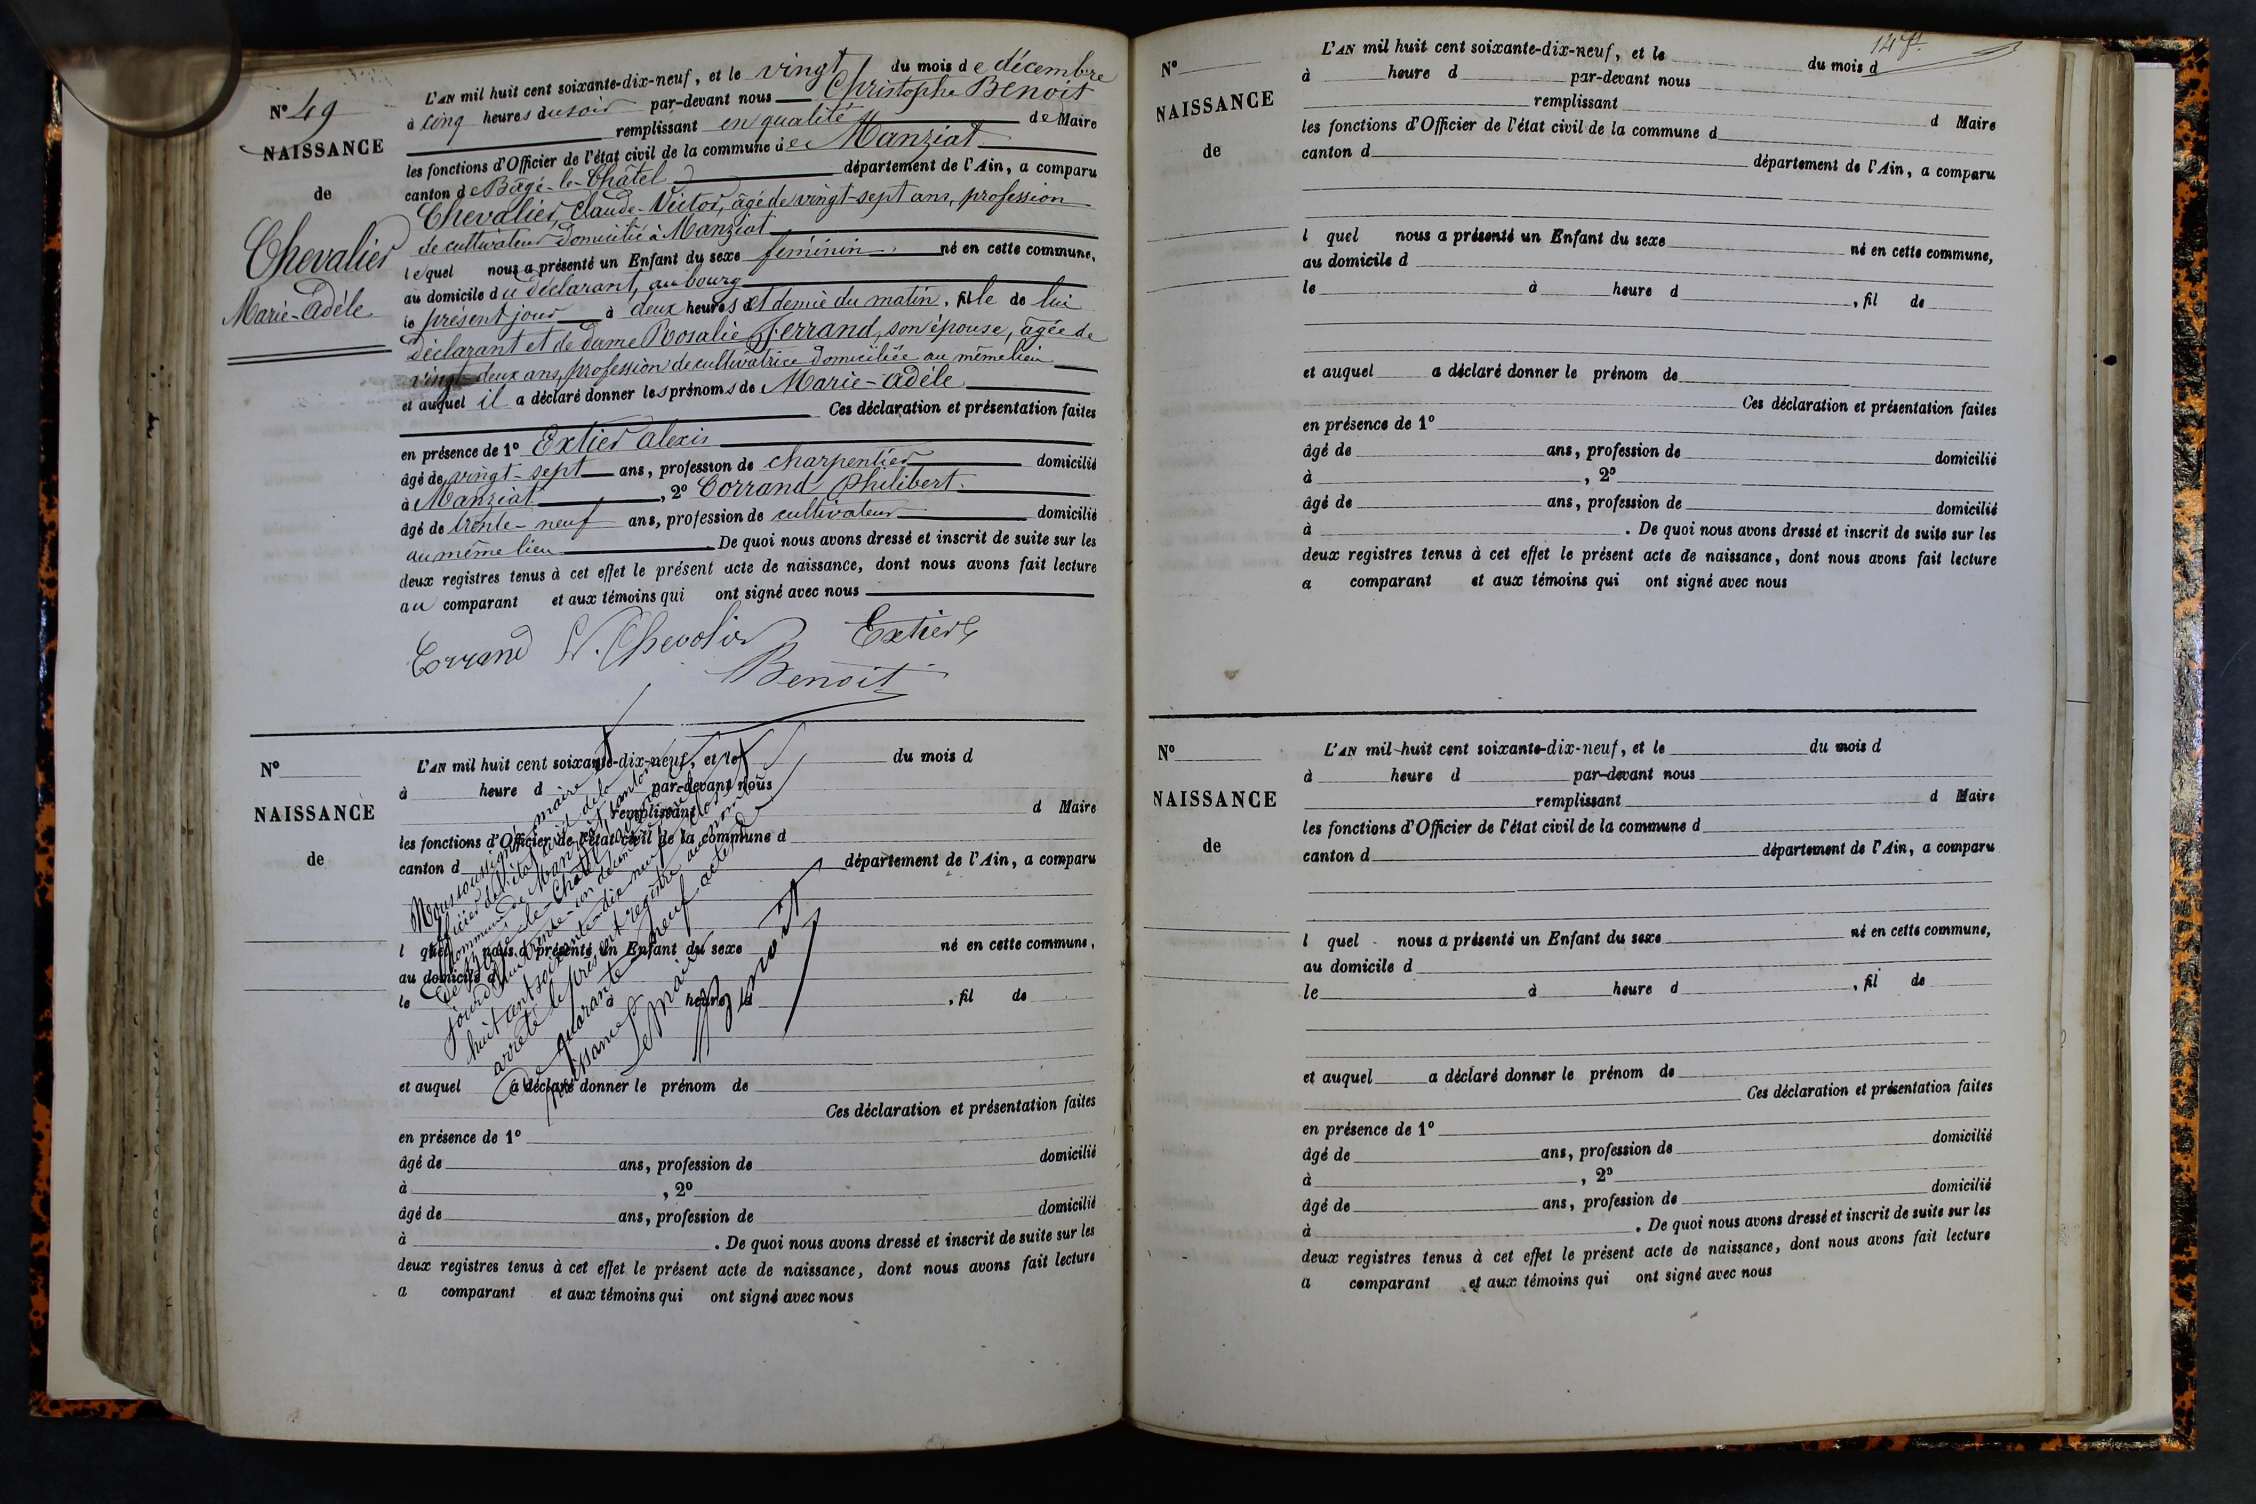 N° 49
NAISSANCE
de
Chevalier
Marie-Adèle
L'AN mil huit cent soixante-dix-neuf, et le vingt du mois de décembre
à cinq heures du soir par-devant nous Christophe Benoit
remplissant en qualité de Maire
les fonctions d'Officier de l'état civil de la commune de Manziat
canton de Bâgé-le-Châtel département de l'Ain, a comparu
Chevalier, Claude-Victor, âgé de vingt-sept ans, profession
de cultivateur domicilié à Manziat
lequel nous a présenté un Enfant du sexe féminin né en cette commune,
au domicile du déclarant, au bourg
le présent jour à deux heures et demie du matin, fille de lui
déclarant et de dame Rosalie Ferrand, son épouse, âgée de
vingt-deux ans, profession de cultivatrice domiciliée au même lieu
et auquel il a déclaré donner les prénoms de Marie-Adèle
Ces déclaration et présentation faites
en présence de 1° Extier Alexis
âgé de vingt-sept ans, profession de charpentier domicilié
à Manziat, 2° Corrand Philibert
âgé de trente-neuf ans, profession de cultivateur domicilié
au même lieu De quoi nous avons dressé et inscrit de suite sur les
deux registres tenus à cet effet le présent acte de naissance, dont nous avons fait lecture
au comparant et aux témoins qui ont signé avec nous
Corrand V. Chevalier Extier
Benoit
N°
NAISSANCE
de
L'AN mil huit cent soixante-dix-neuf, et le du mois d
à heure d par-devant nous
remplissant d Maire
les fonctions d'Officier de l'état civil de la commune d
canton d département de l'Ain, a comparu
l quel nous a présenté un Enfant du sexe né en cette commune,
au domicile d
le à heure d , fil de
et auquel a déclaré donner le prénom de
Ces déclaration et présentation faites
en présence de 1°
âgé de ans, profession de domicilié
à , 2°
âgé de ans, profession de domicilié
à . De quoi nous avons dressé et inscrit de suite sur les
deux registres tenus à cet effet le présent acte de naissance, dont nous avons fait lecture
a comparant et aux témoins qui ont signé avec nous
Nous soussigné, maire
officier de l'état civil de la
commune de Manziat, canton
de Bâgé-le-Châtel, avons
jourd'hui trente-un décembre
huit cent soixante-dix-neuf clos
arrêté le présent registre au nombre
de quarante-neuf actes de
naissance
Le Maire
Benoit
N°
NAISSANCE
de
L'AN mil huit cent soixante-dix-neuf, et le du mois d
à heure d par-devant nous
remplissant
d Maire
les fonctions d'Officier de l'état civil de la commune d
canton d département de l'Ain, a comparu
l quel nous a présenté un Enfant du sexe né en cette commune,
au domicile d
le à heure d , fil de
et auquel a déclaré donner le prénom de
Ces déclaration et présentation faites
en présence de 1°
âgé de ans, profession de domicilié
à , 2°
âgé de ans, profession de domicilié
à . De quoi nous avons dressé et inscrit de suite sur les
deux registres tenus à cet effet le présent acte de naissance, dont nous avons fait lecture
a comparant et aux témoins qui ont signé avec nous
N°
NAISSANCE
de
L'AN mil huit cent soixante-dix-neuf, et le du mois d
à heure d par-devant nous
remplissant d Maire
les fonctions d'Officier de l'état civil de la commune d
canton d département de l'Ain, a comparu
l quel nous a présenté un Enfant du sexe né en cette commune,
au domicile d
le à heure d , fil de
et auquel a déclaré donner le prénom de
Ces déclaration et présentation faites
en présence de 1°
âgé de ans, profession de domicilié
à , 2°
âgé de ans, profession de domicilié
à . De quoi nous avons dressé et inscrit de suite sur les
deux registres tenus à cet effet le présent acte de naissance, dont nous avons fait lecture
a comparant et aux témoins qui ont signé avec nous